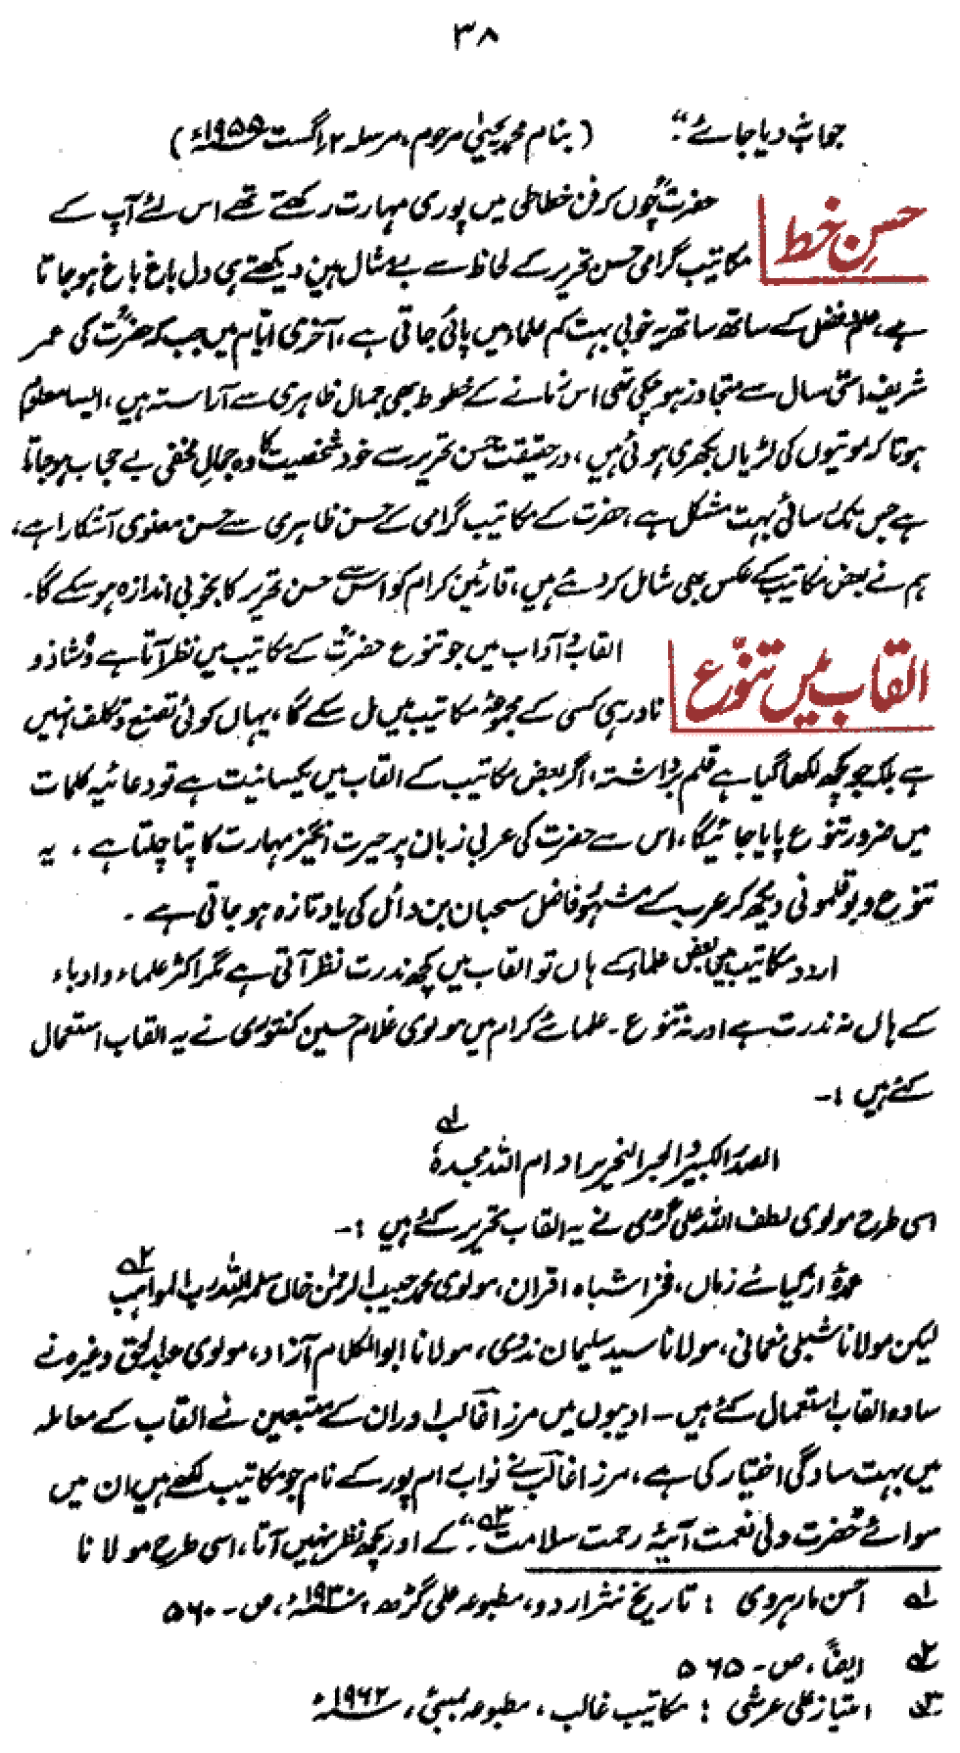 ۳۸
جواب دیا جائے ؛" (بنام محمد یحییٰ مرحوم، مرسلہ ۲ اگست ۱۹۵۵ء)
حسنِ خط
حضرتؒ چوں کہ فن خطاطی میں پوری مہارت رکھتے تھے اس لئے آپ کے
مکاتیب گرامی حسن تحریر کے لحاظ سے بے مثال ہیں دیکھتے ہی دل باغ باغ ہو جاتا
ہے، علم و فضل کے ساتھ ساتھ یہ خوبی بہت کم علماء میں پائی جاتی ہے، آخری ایام میں جب کہ حضرتؒ کی عمر
شریف اسّی سال سے متجاوز ہو چکی تھی اس زمانے کے خطوط بھی جمال ظاہری سے آراستہ ہیں، ایسا معلوم
ہوتا کہ موتیوں کی لڑیاں بکھری ہوئی ہیں، درحقیقت حسن تحریر سے خود شخصیت کا وہ جمالِ مخفی بے حجاب ہو جاتا
ہے جس تک رسائی بہت مشکل ہے، حضرت کے مکاتیب گرامی کے حسن ظاہری سے حسن معنوی آشکارا ہے،
ہم نے بعض مکاتیب کے عکس بھی شامل کر دئے ہیں، قارئین کرام کو اس سے حسن تحریر کا بخوبی اندازہ ہو سکے گا۔
القاب میں تنوّع
القاب و آداب میں جو تنوع حضرتؒ کے مکاتیب میں نظر آتا ہے وہ شاذ و
نادر ہی کسی کے مجموعۂ مکاتیب میں مل سکے گا، یہاں کوئی تصنع و تکلف نہیں
ہے بلکہ جو کچھ لکھا گیا ہے قلم برداشتہ، اگر بعض مکاتیب کے القاب میں یکسانیت ہے تو دعائیہ کلمات
میں ضرور تنوع پایا جائیگا، اس سے حضرت کی عربی زبان پر حیرت انگیز مہارت کا پتا چلتا ہے، یہ
تنوع و بوقلمونی دیکھ کر عرب کے مشہور فاضل سحبان بن وائل کی یاد تازہ ہو جاتی ہے ۔
اردو مکاتیب میں بعض علماء کے ہاں تو القاب میں کچھ ندرت نظر آتی ہے مگر اکثر علماء و ادباء
کے ہاں نہ ندرت ہے اور نہ تنوع ۔ علمائے کرام میں مولوی غلام حسین کنتوری نے یہ القاب استعمال
کئے ہیں :۔
الصدر الکبیر و الحبر النحریر ادام اللہ مجدہٗ ؎۱
اسی طرح مولوی لطف اللہ علی گڑھی نے یہ القاب تحریر کئے ہیں :۔
عمدۂ ازکیائے زماں، فخر اشباہ اقران، مولوی محمد حبیب الرحمٰن خاں سلمہ اللہ رب المواہب ؎۲
لیکن مولانا شبلی نعمانی، مولانا سید سلیمان ندوی، مولانا ابوالکلام آزاد، مولوی عبدالحق وغیرہ نے
سادہ القاب استعمال کئے ہیں ۔ ادیبوں میں مرزا غالب اور ان کے متبعین نے القاب کے معاملہ
میں بہت سادگی اختیار کی ہے، مرزا غالب نے نواب رام پور کے نام جو مکاتیب لکھے ہیں ان میں
سوائے "حضرت ولی نعمت آیۂ رحمت سلامت ؎۳"۔ کے اور کچھ نظر نہیں آتا، اسی طرح مولانا
؎۱ احسن مارہروی : تاریخ نثر اردو، مطبوعہ علی گڑھ، ۱۹۳۰ء، ص۔ ۵۶۰
؎۲ ایضاً، ص۔ ۵۶۵
؎۳ امتیاز علی عرشی : مکاتیب غالب، مطبوعہ بمبئی، ۱۹۶۲ء